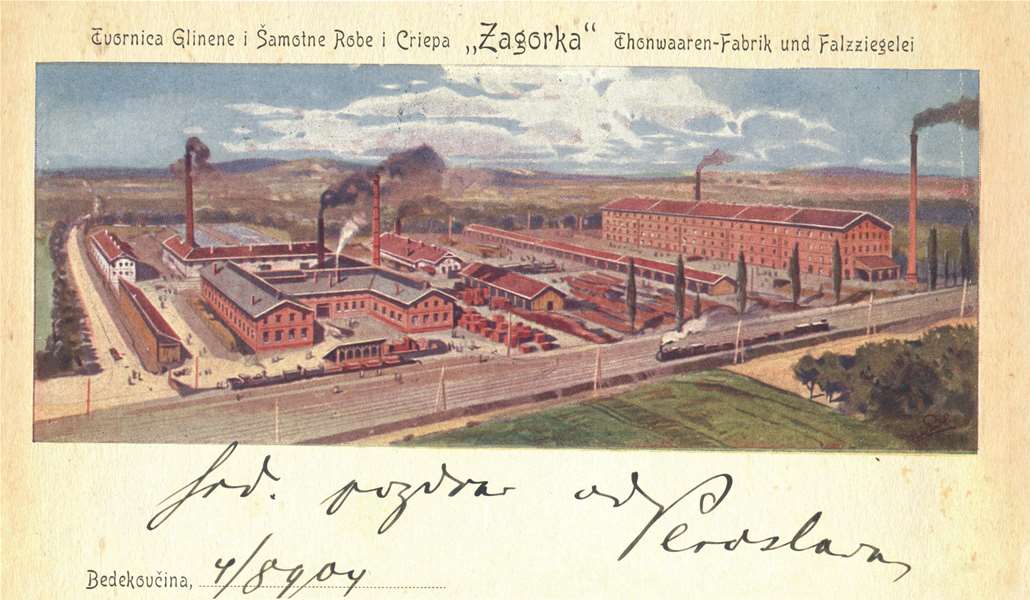 Tvornica Glinene i Šamotne Robe i Criepa „Zagorka“ Thonwaaren-Fabrik und Falzziegelei
Srd. pozdrav od
Bedekovčina, 4/8 904